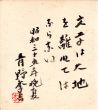 文学は大地
を離れては
ならない
昭和三十五年晩夏
青野季吉